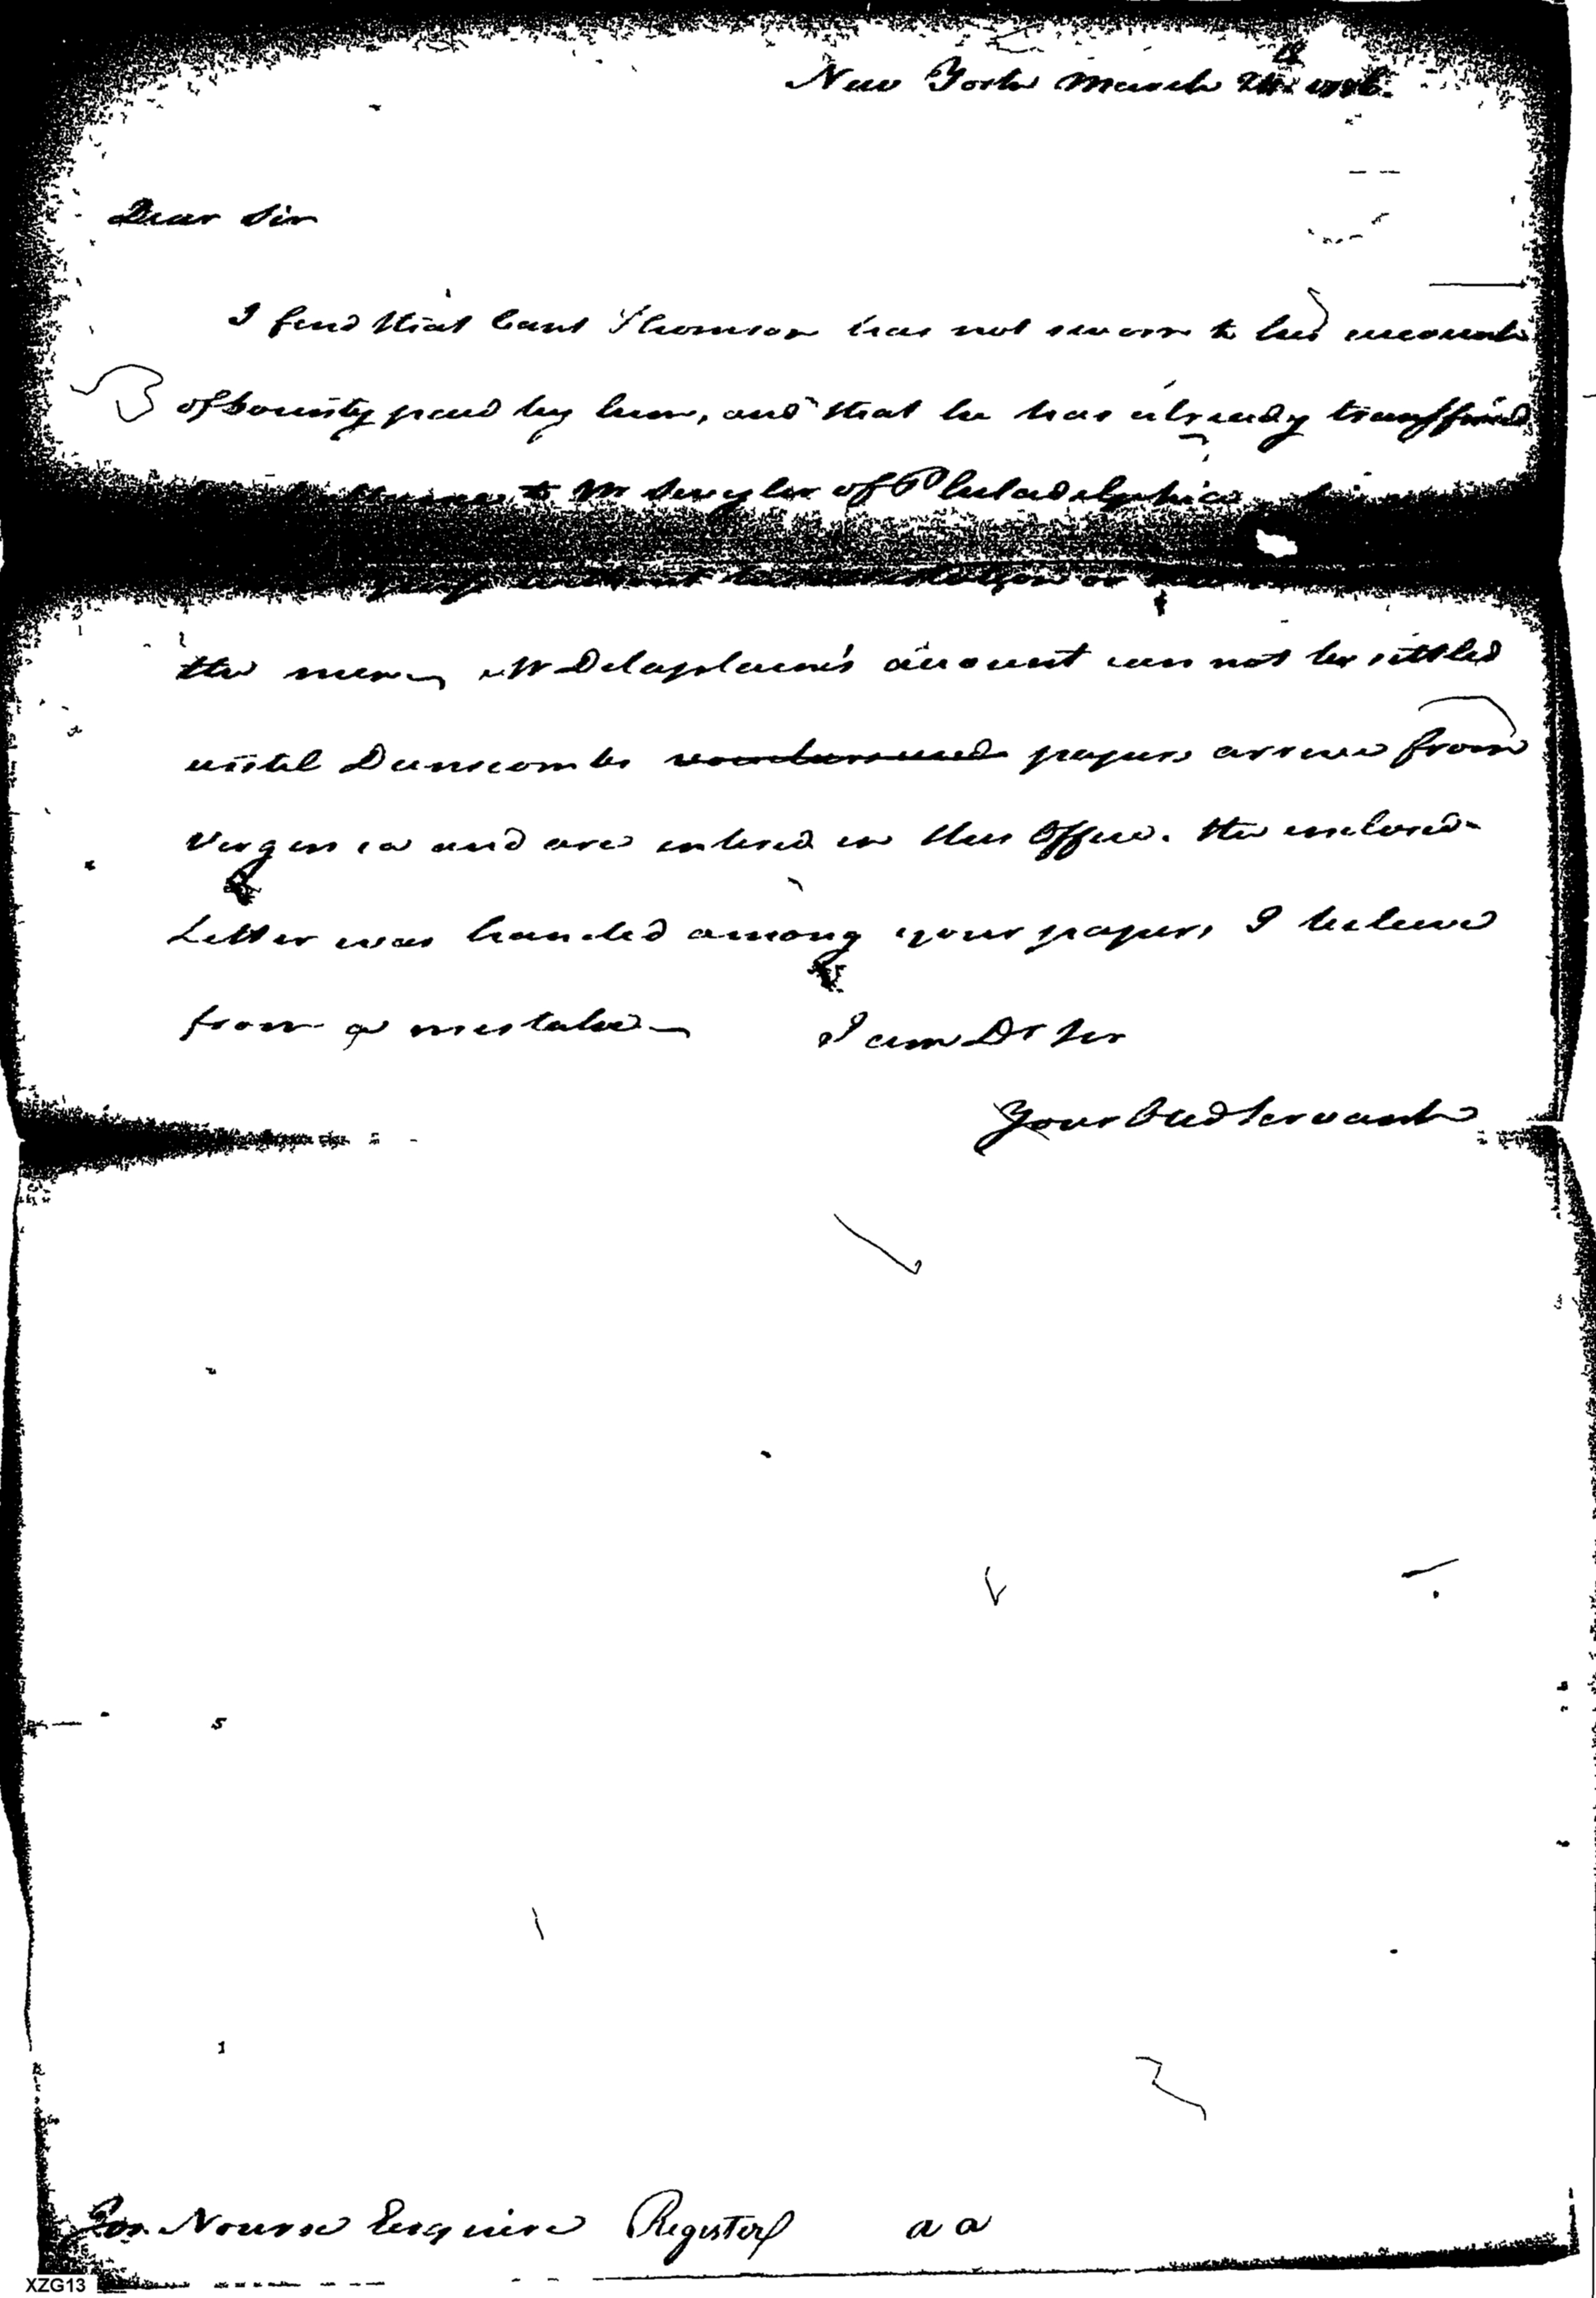 New York March 24th 1786.
Dear Sir
I find that Capt Thomson has not sworn to his accounts
of bounty paid by him, and that he has already transferred
to Mr Swyler of Philadelphia
without or
the men, Mr Delaplaine's account can not be settled
until Dunscombs papers arrive from
Virginia and are entered in this Office. the inclosed
Letter was handed among your papers, I believe
from a mistake
I am Dr Sir
Your Obed Servant
Jos. Nourse Esquire Register
a a
XZG13